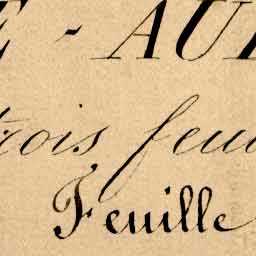 E - AU
trois feui
Feuille